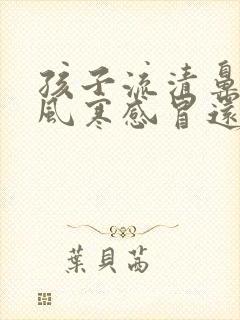 孩子流清鼻
風寒感冒還
葉貝芮